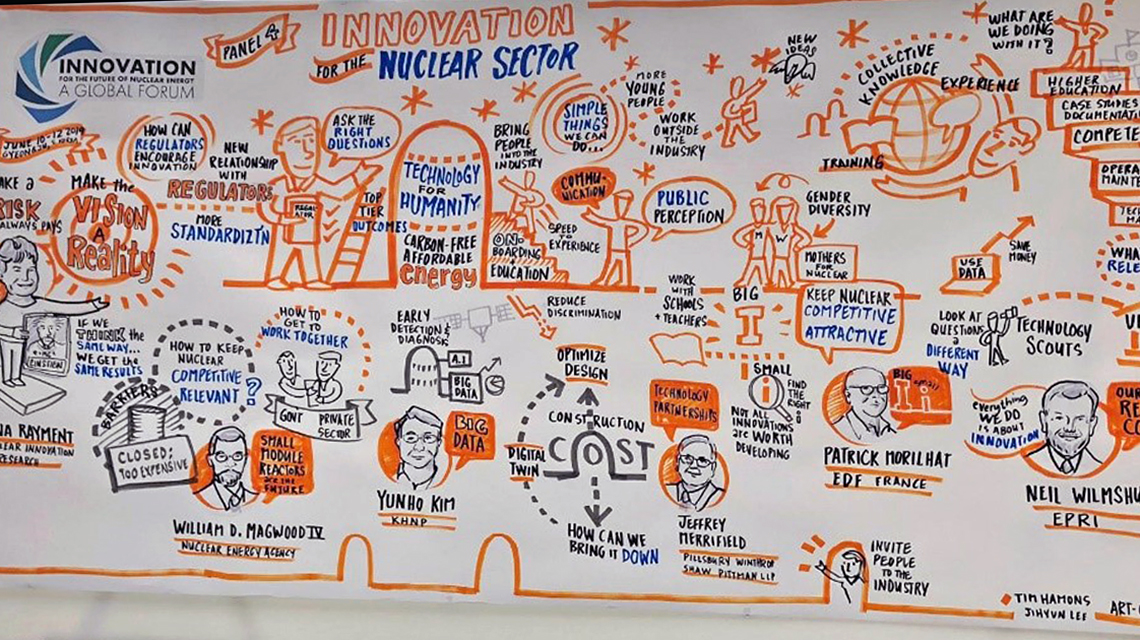 PANEL 4
INNOVATION
FOR THE
NUCLEAR SECTOR
INNOVATION
FOR THE FUTURE OF NUCLEAR ENERGY
A GLOBAL FORUM
JUNE 10-12 2019
MAKE the
VISION
A
Reality
RISK
ALWAYS PAYS
HOW CAN
REGULATORS
ENCOURAGE
INNOVATION
NEW
RELATIONSHIP
WITH
REGULATORS
MORE
STANDARDIZT'N
ASK THE
RIGHT
QUESTIONS
REGUL
ATOR
TOP
TIER
OUTCOMES
TECHNOLOGY
FOR
HUMANITY
CARBON-FREE
AFFORDABLE
energy
BRING
PEOPLE
INTO THE
INDUSTRY
ON-
BOARDING
&
EDUCATION
SPEED
TO
EXPERIENCE
SIMPLE
THINGS
WE CAN
DO...
COMMU-
NICATION
PUBLIC
PERCEPTION
MORE
YOUNG
PEOPLE
WORK
OUTSIDE
THE
INDUSTRY
NEW
IDEAS
GENDER
DIVERSITY
M W
MOTHERS
FOR
NUCLEAR
COLLECTIVE
KNOWLEDGE
EXPERIENCE
TRAINING
WHAT ARE
WE DOING
WITH IT?
HIGHER
EDUCATION
CASE STUDIES
USE
DATA
SAVE
MONEY
IF WE
THINK the
SAME WAY...
WE GET the
SAME RESULTS
EINSTEIN
NUCLEAR INNOVATION
RESEARCH
BARRIERS
CLOSED;
TOO EXPENSIVE
HOW TO KEEP
NUCLEAR
COMPETITIVE
RELEVANT?
HOW TO
GET TO
WORK TOGETHER
GOVT PRIVATE
SECTOR
SMALL
MODULE
REACTORS
are the
FUTURE
WILLIAM D. MAGWOOD IV
NUCLEAR ENERGY AGENCY
EARLY
DETECTION &
DIAGNOSIS
A.I
BIG
DATA
BIG
DATA
YUNHO KIM
KHNP
REDUCE
DISCRIMINATION
OPTIMIZE
DESIGN
CONSTRUCTION
COST
DIGITAL
TWIN
HOW CAN WE
BRING IT DOWN
WORK
WITH
SCHOOLS
+ TEACHERS
TECHNOLOGY
PARTNERSHIPS
JEFFREY
MERRIFIELD
PILLSBURY WINTHROP
SHAW PITTMAN LLP
BIG
I
SMALL
i
FIND
THE
RIGHT
NOT ALL
INNOVATIONS
are WORTH
DEVELOPING
KEEP NUCLEAR
COMPETITIVE
ATTRACTIVE
BIG small
I i
PATRICK MORILHAT
EDF FRANCE
LOOK AT
QUESTIONS
a
DIFFERENT
WAY
TECHNOLOGY
SCOUTS
everything
WE DO
IS ABOUT
INNOVATION
EPRI
INVITE
PEOPLE
TO THE
INDUSTRY
TIM HAMONS
JIHYUN LEE